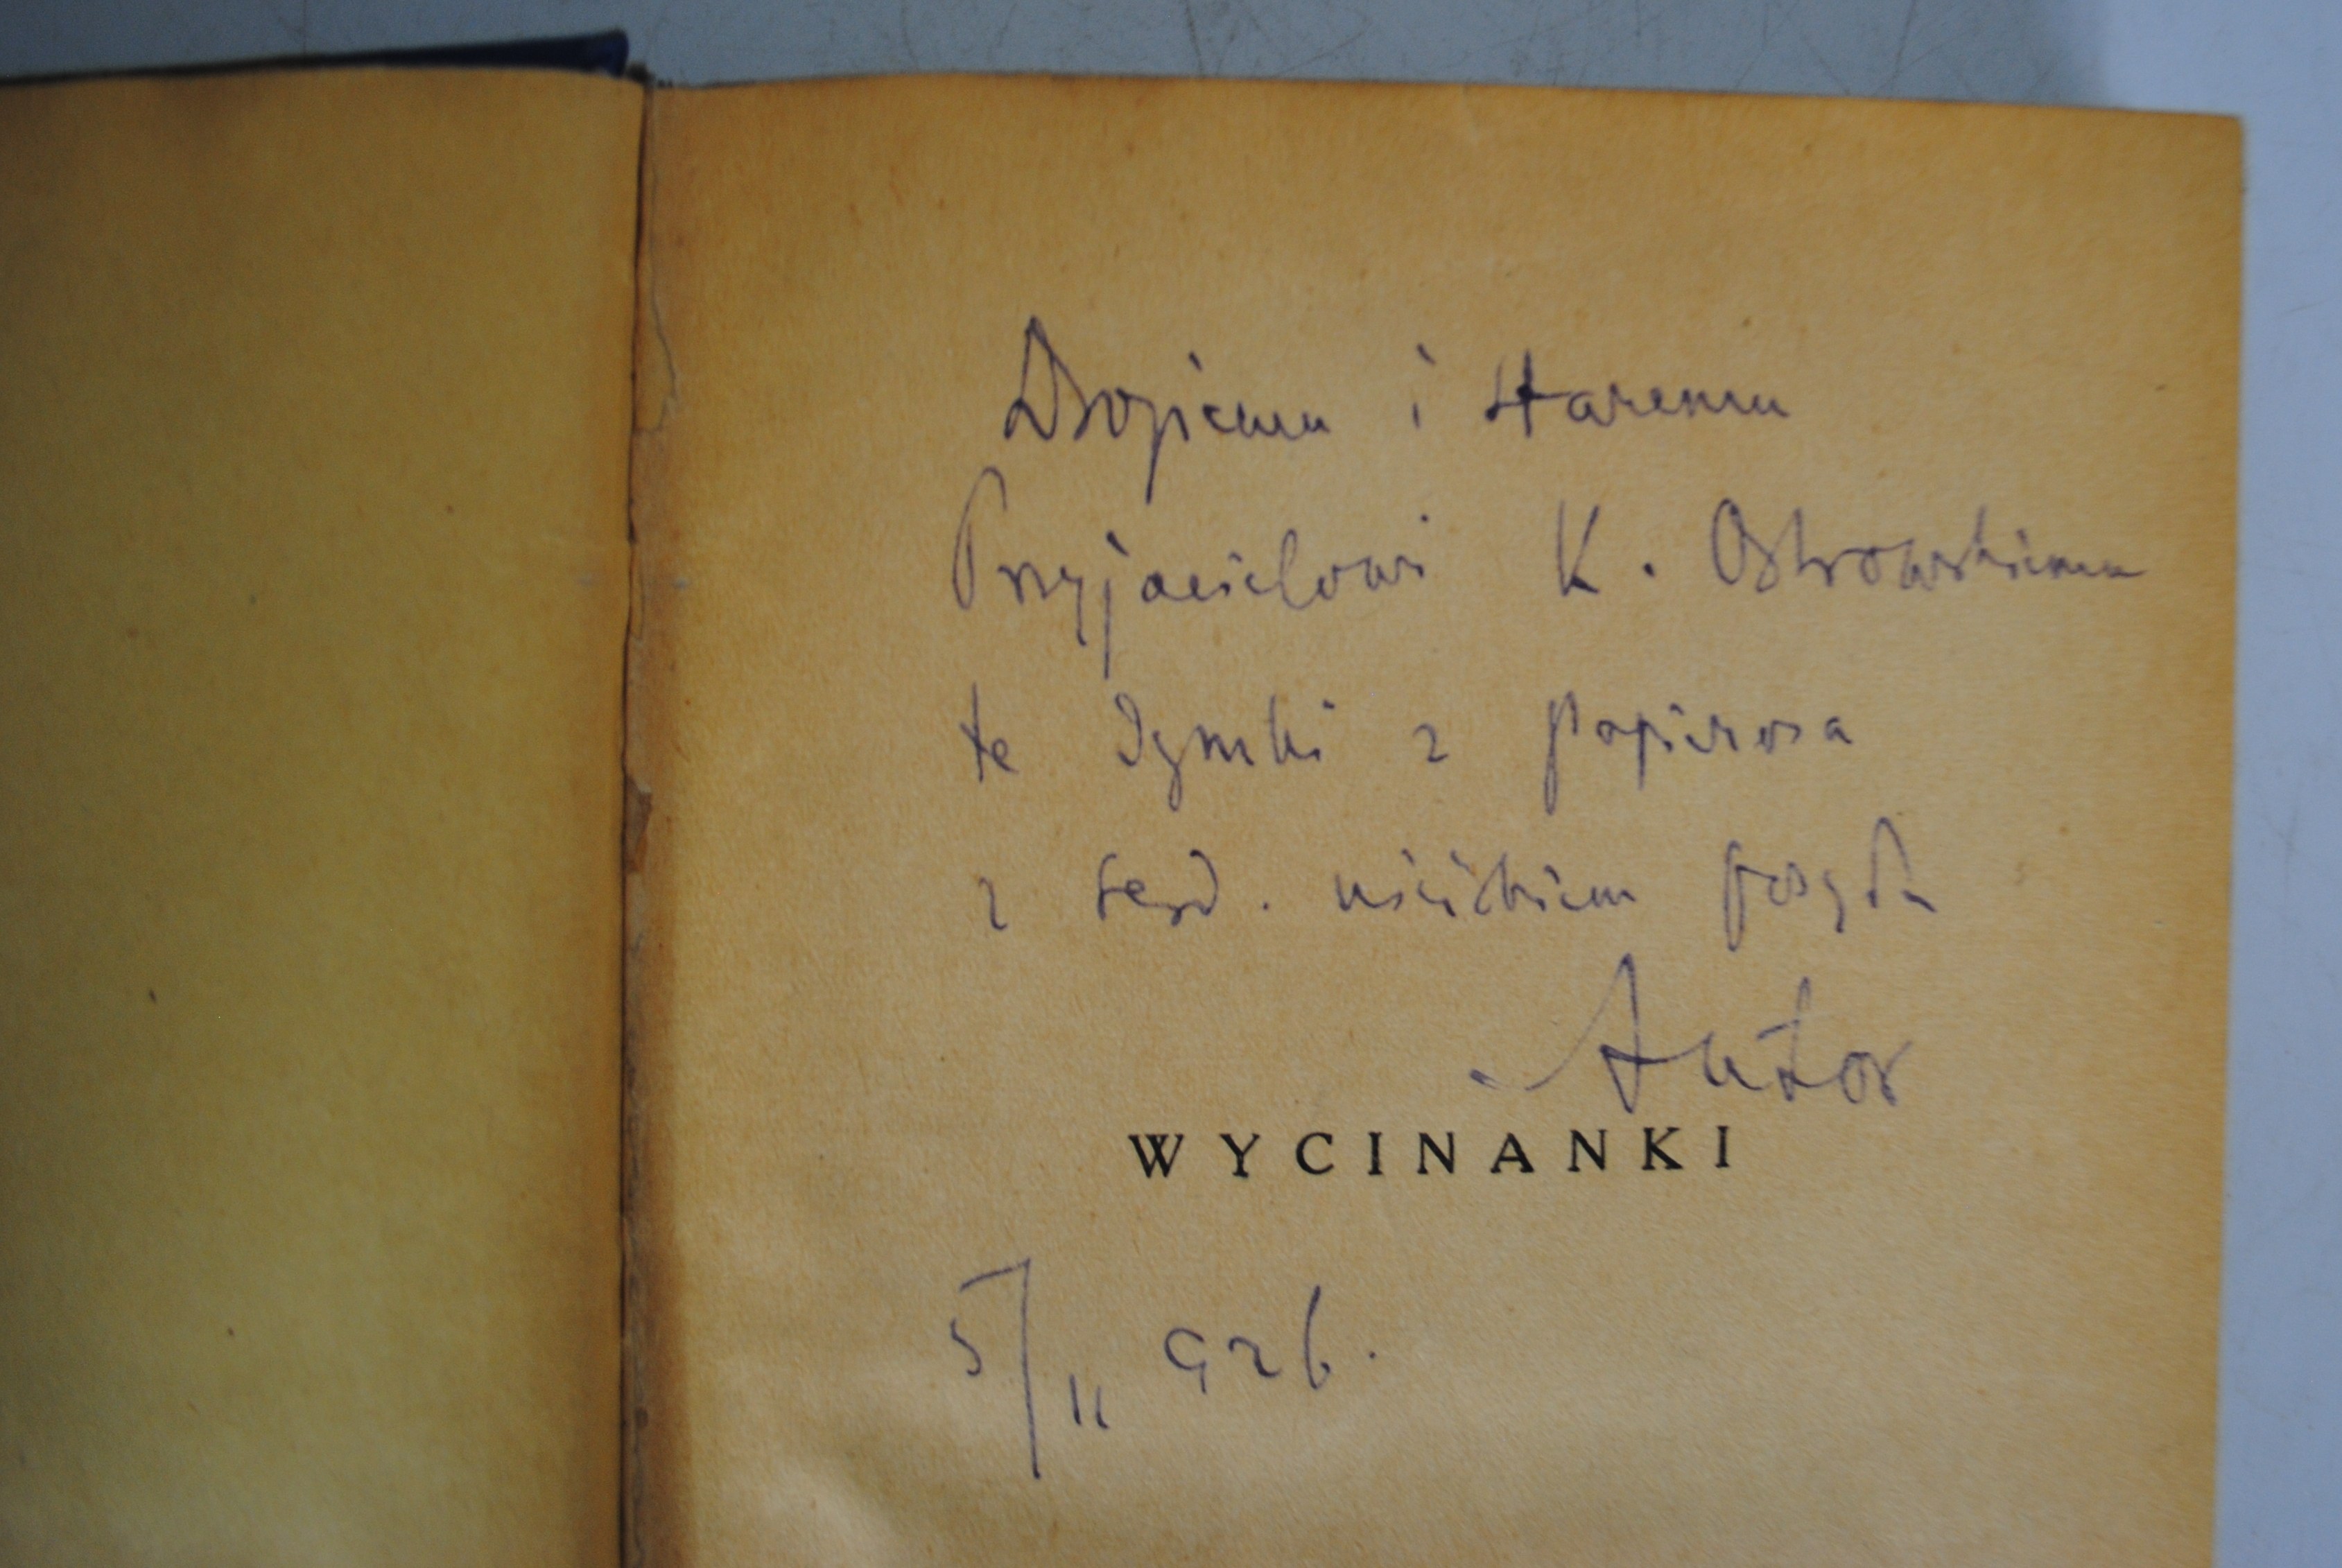 Drogiemu i staremu
Przyjacielowi K. Ostrowskiemu
te dymki z papierosa
z serd. uściskiem
Autor
WYCINANKI
5/II